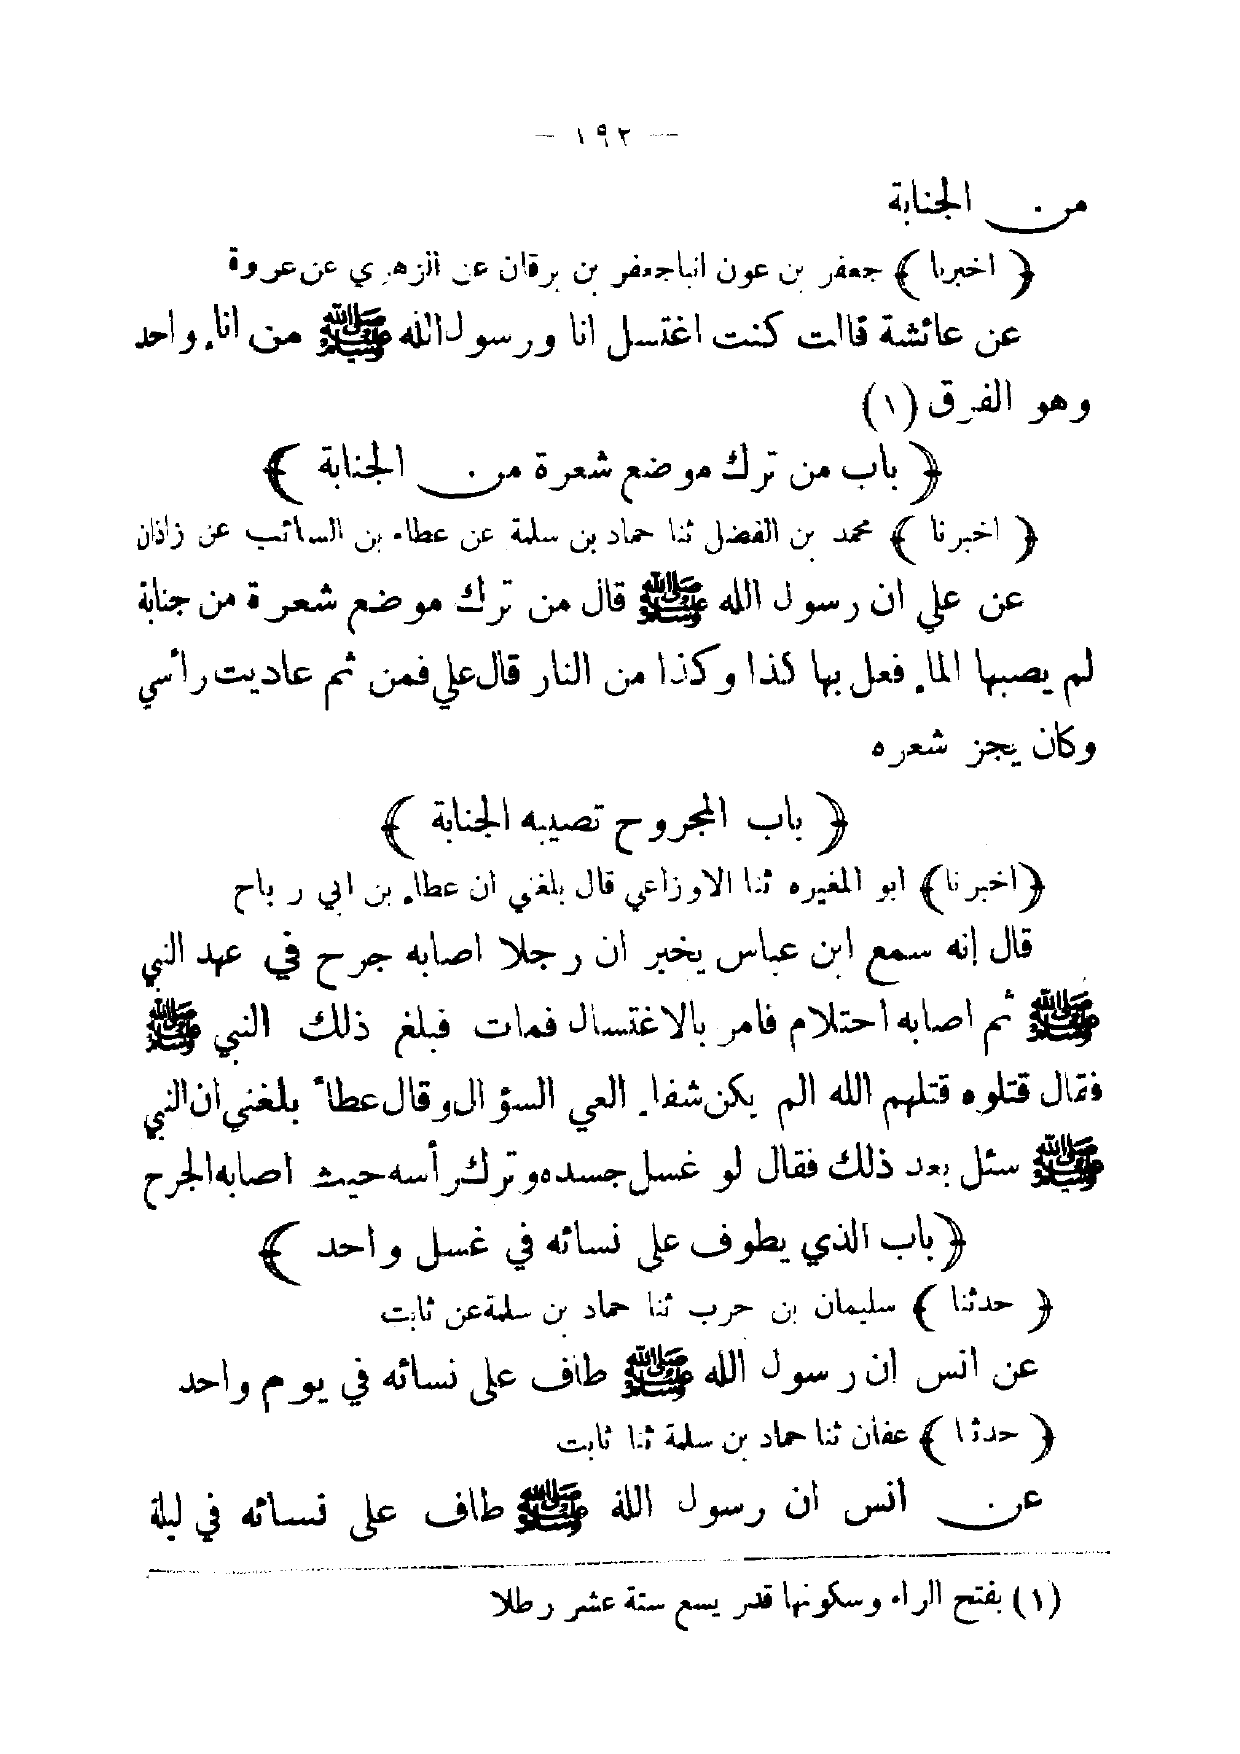 — ١٩٢ —
من الجنابة
﴿ اخبرنا ﴾ جعفر بن عون انبا جعفر بن برقان عن الزهري عن عروة
عن عائشة قالت كنت اغتسل انا ورسول الله ﷺ من اناء واحد
وهو الفرق (١)
﴿ باب من ترك موضع شعرة من الجنابة ﴾
﴿ اخبرنا ﴾ محمد بن الفضل ثنا حماد بن سلمة عن عطاء بن السائب عن زاذان
عن علي ان رسول الله ﷺ قال من ترك موضع شعرة من جنابة
لم يصبها الماء فعل بها كذا وكذا من النار قال علي فمن ثم عاديت رأسي
وكان يجز شعره
﴿ باب المجروح تصيبه الجنابة ﴾
﴿اخبرنا﴾ ابو المغيره ثنا الاوزاعي قال بلغني ان عطاء بن ابي رباح
قال إنه سمع ابن عباس يخبر ان رجلا اصابه جرح في عهد النبي
ﷺ ثم اصابه احتلام فامر بالاغتسال فمات فبلغ ذلك النبي ﷺ
فقال قتلوه قتلهم الله الم يكن شفاء العي السؤال وقال عطاء بلغني ان النبي
ﷺ سئل بعد ذلك فقال لو غسل جسده وترك رأسه حيث اصابه الجرح
﴿ باب الذي يطوف على نسائه في غسل واحد ﴾
﴿ حدثنا ﴾ سليمان بن حرب ثنا حماد بن سلمة عن ثابت
عن انس ان رسول الله ﷺ طاف على نسائه في يوم واحد
﴿ حدثنا ﴾ عفان ثنا حماد بن سلمة ثنا ثابت
عن أنس ان رسول الله ﷺ طاف على نسائه في ليلة
(١) بفتح الراء وسكونها قدر يسع ستة عشر رطلا